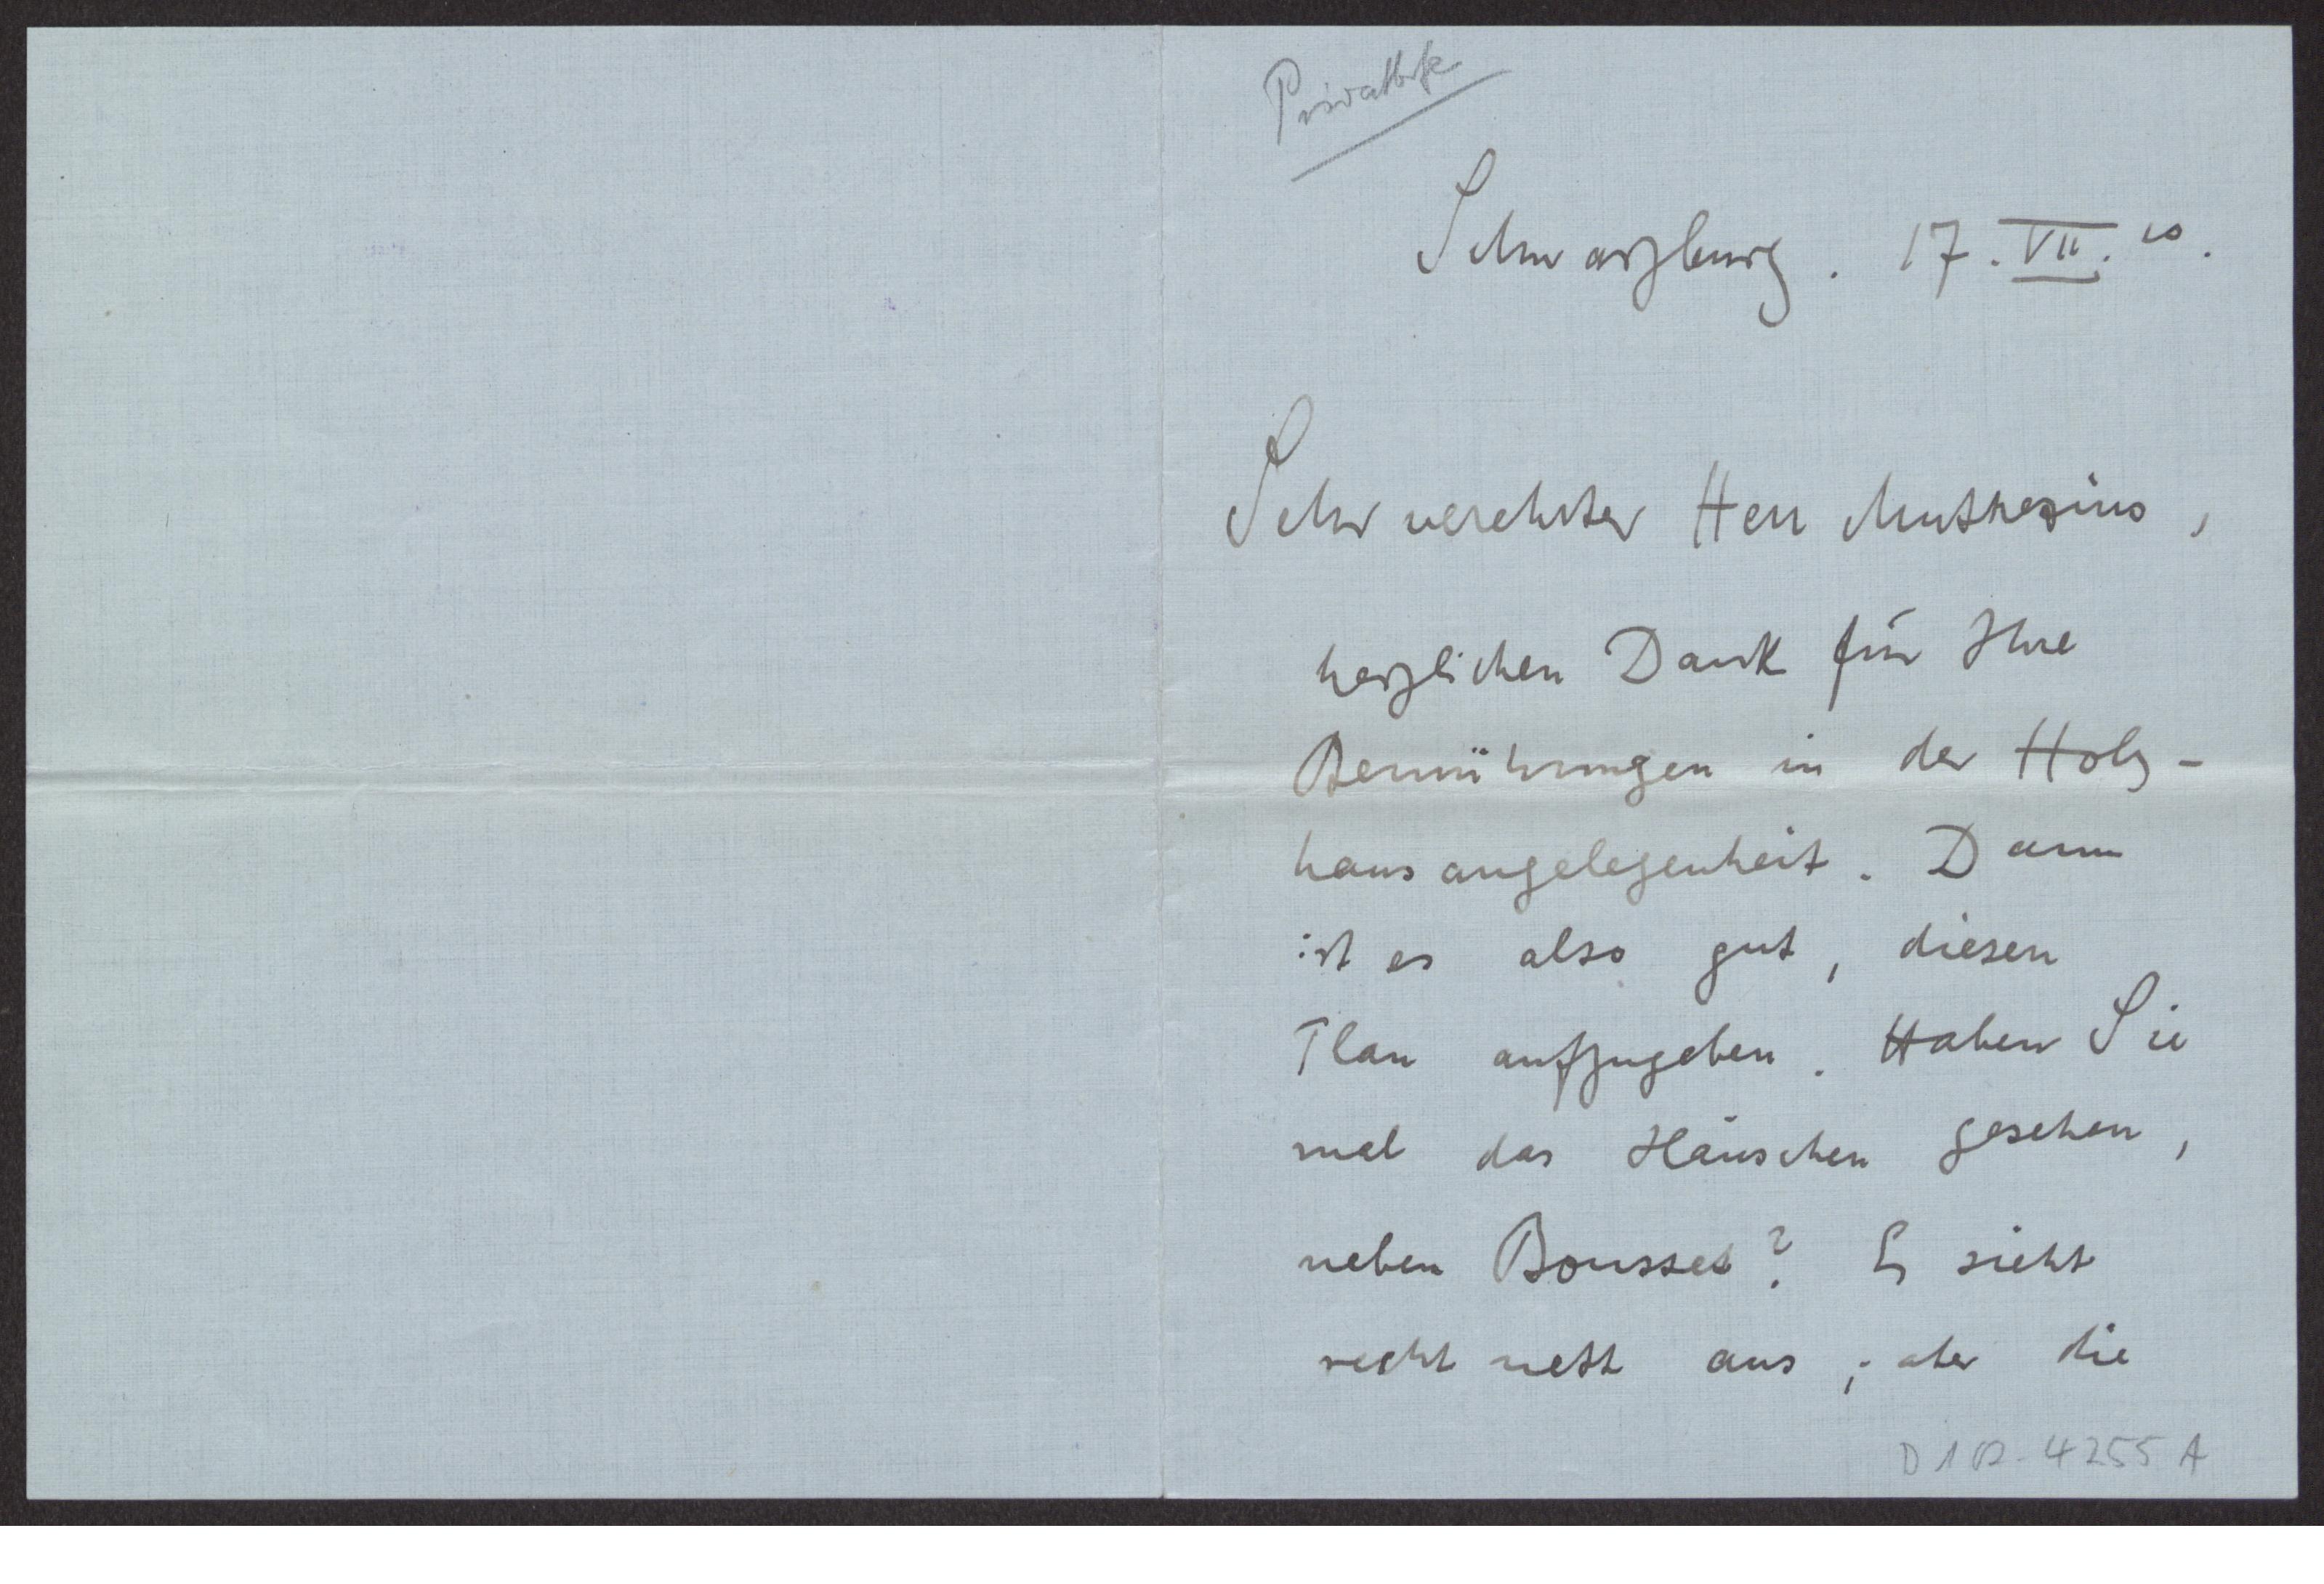 Schwarzburg. 17. VII. 10.
Sehr verehrter Herr Muthesius,
herzlichen Dank für Ihre
Bemühungen in der Holz-
hausangelegenheit. Dann
ist es also gut, diesen
Plan aufzugeben. Haben Sie
mal das Häuschen gesehen,
neben Bousset? Es sieht
recht nett aus; aber die
D 102-4255 A